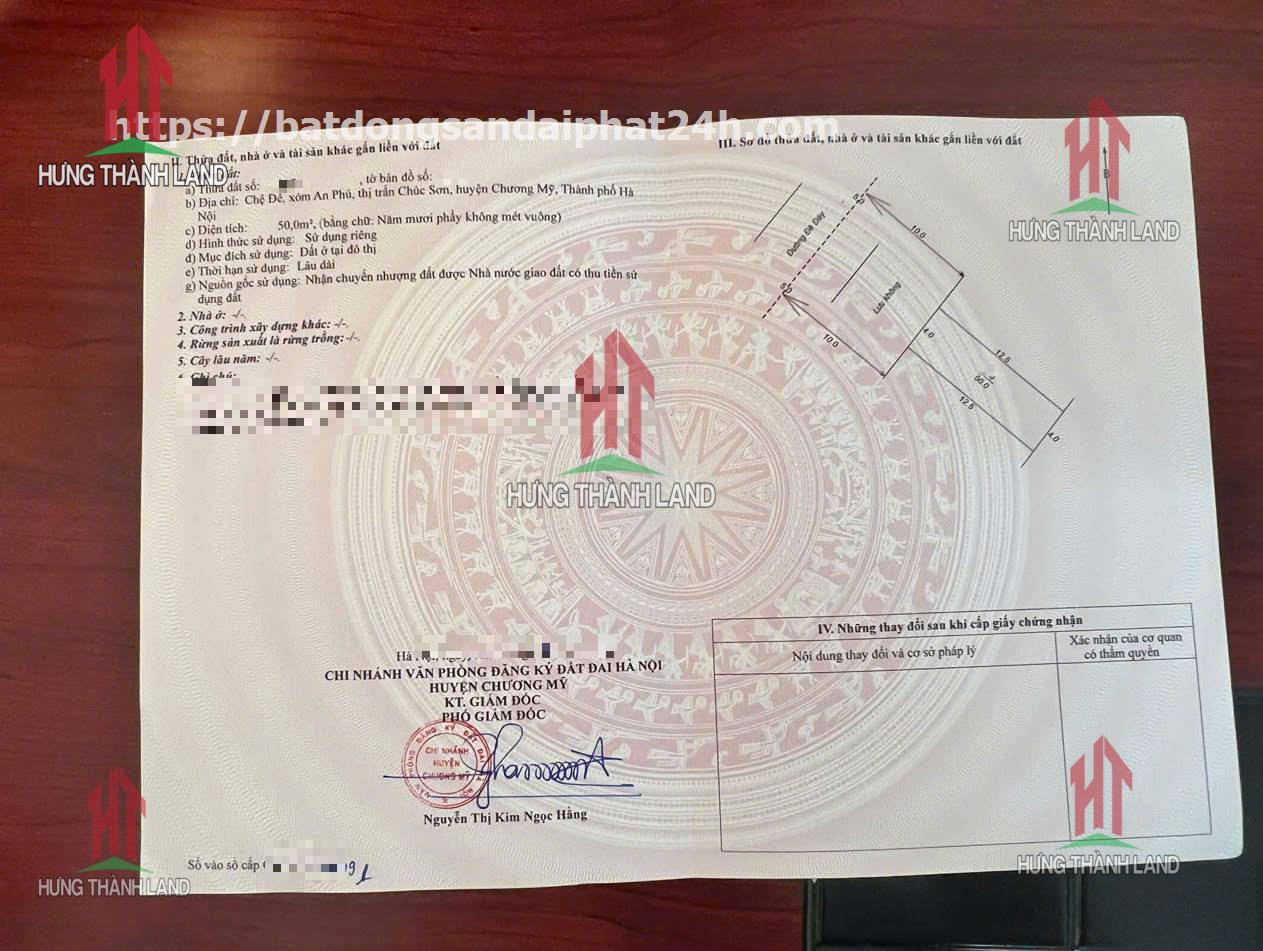 https://batdongsandaiphat24h.com
HƯNG THÀNH LAND
HƯNG THÀNH LAND
HƯNG THÀNH LAND
HƯNG THÀNH LAND
HƯNG THÀNH LAND
II. Thửa đất, nhà ở và tài sản khác gắn liền với đất
đất:
a) Thửa đất số: , tờ bản đồ số:
b) Địa chỉ: Chệ Đê, xóm An Phú, thị trấn Chúc Sơn, huyện Chương Mỹ, Thành phố Hà
Nội
c) Diện tích: 50,0m², (bằng chữ: Năm mươi phẩy không mét vuông)
d) Hình thức sử dụng: Sử dụng riêng
đ) Mục đích sử dụng: Đất ở tại đô thị
e) Thời hạn sử dụng: Lâu dài
g) Nguồn gốc sử dụng: Nhận chuyển nhượng đất được Nhà nước giao đất có thu tiền sử
dụng đất
2. Nhà ở: -/-.
3. Công trình xây dựng khác: -/-.
4. Rừng sản xuất là rừng trồng: -/-.
5. Cây lâu năm: -/-.
Ghi chú:
Hà
CHI NHÁNH VĂN PHÒNG ĐĂNG KÝ ĐẤT ĐAI HÀ NỘI
HUYỆN CHƯƠNG MỸ
KT. GIÁM ĐỐC
PHÓ GIÁM ĐỐC
VĂN PHÒNG ĐĂNG KÝ ĐẤT ĐAI HÀ NỘI
CHI NHÁNH
HUYỆN
CHƯƠNG MỸ
Nguyễn Thị Kim Ngọc Hằng
Số vào sổ cấp
III. Sơ đồ thửa đất, nhà ở và tài sản khác gắn liền với đất
B
Đường Đê Đáy
10.0
Lưu không
10.0
4.0
12.5
50.0
12.5
4.0
IV. Những thay đổi sau khi cấp giấy chứng nhận
Nội dung thay đổi và cơ sở pháp lý
Xác nhận của cơ quan
có thẩm quyền